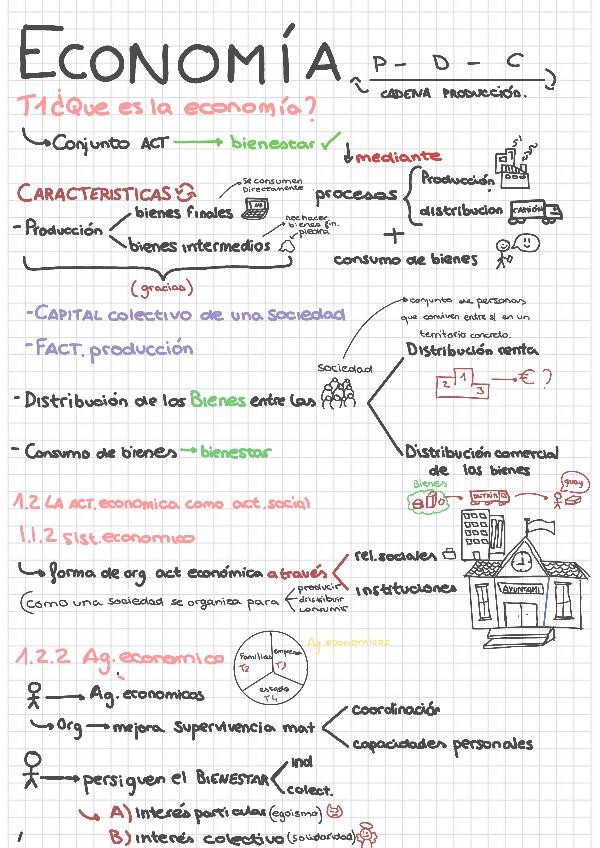 ECONOMÍA
P - D - C
CADENA PRODUCCIÓN.
T1 ¿Que es la economía?
Conjunto ACT → bienestar ✓
↓ mediante
CARACTERISTICAS
Se consumen
Directamente
procesos
Producción
distribucion
CAMIÓN
- Producción
bienes finales
bienes intermedios
piedra
+
consumo de bienes
(gracias)
- CAPITAL colectivo de una sociedad
- FACT. producción
conjunto de personas
que conviven entre sí en un
territorio concreto.
Sociedad
Distribución renta
2 1 3 → € ?
- Distribución de los Bienes entre las
- Consumo de bienes → bienestar
Distribución comercial
de los bienes
Bienes
guay
1.2 LA ACT. economica como act. social
1.1.2 Sist. economico
forma de org act económica através
rel. sociales
instituciones
AYUNTAMI
(como una sociedad se organiza para
producir
distribuir
consumir
1.2.2 Ag. economico
Familias T2
empresa T3
estado T4
Ag. economicos
→ Ag. economicos
Org → mejora Supervivencia mat
coordinación
capacidades personales
→ persiguen el BIENESTAR
ind
colect.
A) Interés particular (egoismo)
B) interés colectivo (solidaridad)
1